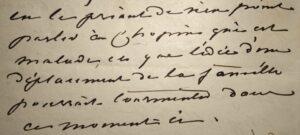 en le priant de n'en point
parler à Chopin qui est
malade, et que l'idée d'un
déplacement de la famille
pourrait tourmenter dans
ce moment ci.